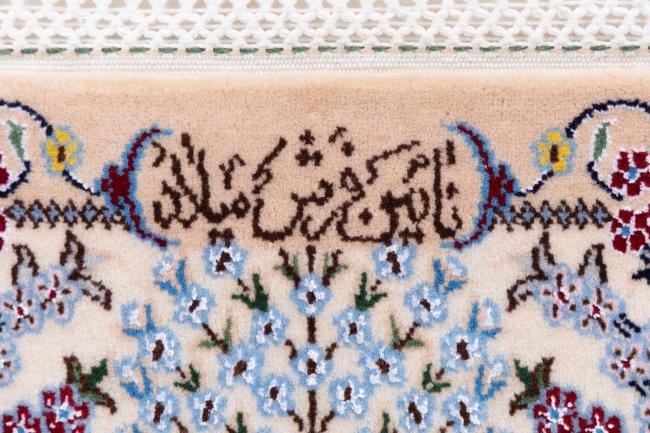 نائین فرش میلاد